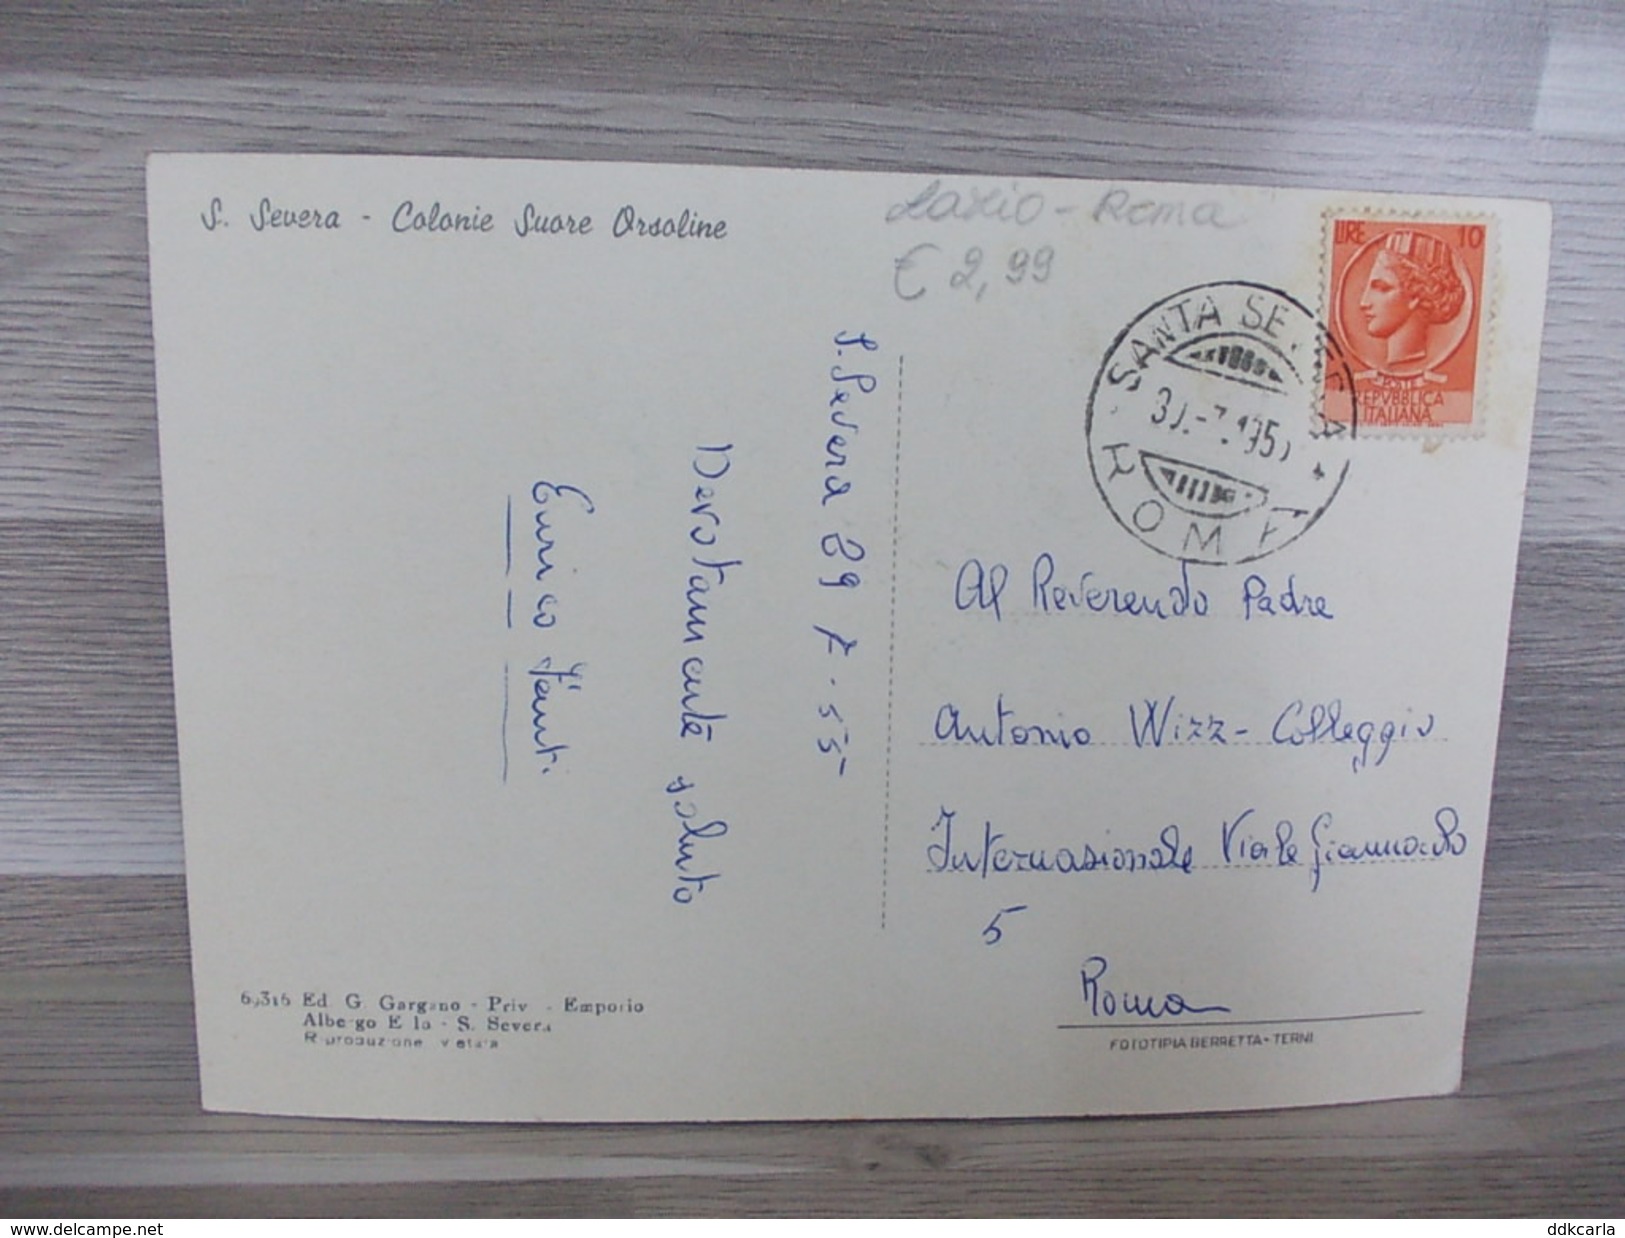 S. Severa - Colonie Suore Orsoline
Lazio - Roma
€ 2,99
LIRE 10
POSTE
REPVBBLICA
ITALIANA
SANTA SEVERA
30.-7.195
ROMA
S. Severa 29 7 - 55
Devotamente saluto
Enrico
Al Reverendo Padre
Antonio Wizz - Colleggio
Internazionale Viale Giannicolo
5
Roma
Ed. G. Gargano - Priv. - Emporio
Albergo - S. Severa
Riproduzione vietata
FOTOTIPIA BERRETTA - TERNI
www.delcampe.net
ddkcarla